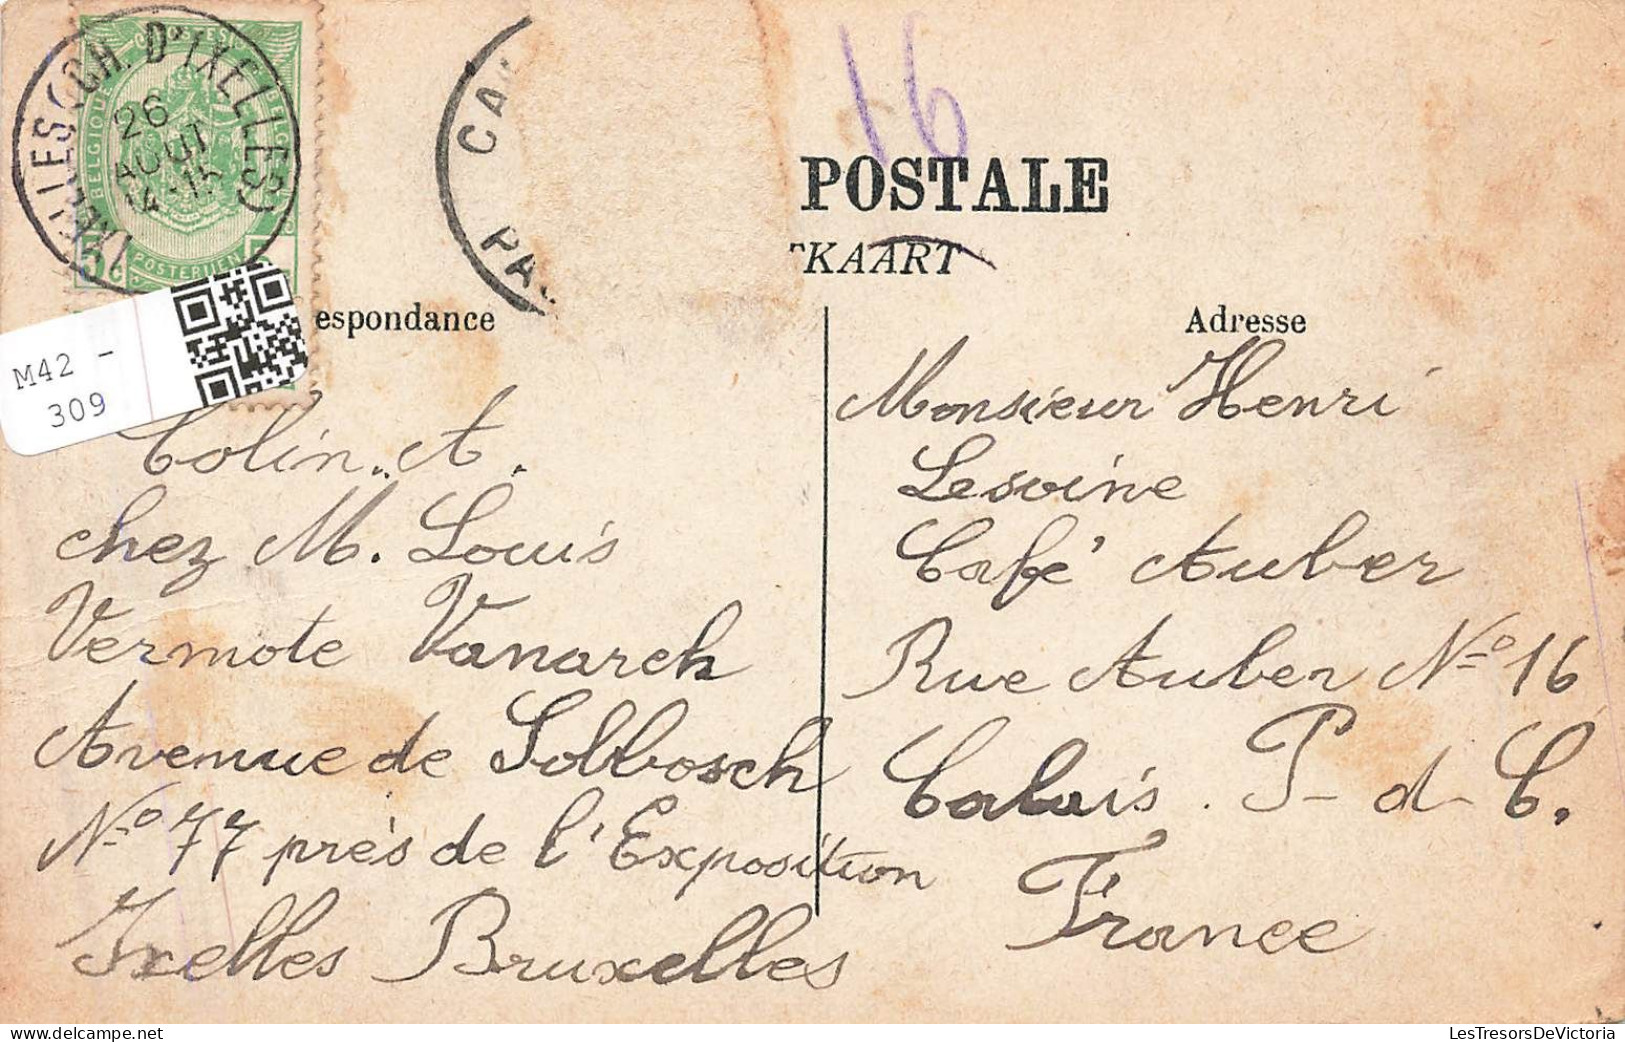 IXELLES (CH. D'IXELLES)
26
AOUT
14-15
BELGIQUE
BELGIE
POSTERIJEN
CA
PA
16
POSTALE
TKAART
espondance
Adresse
M42 -
309
Colin. A.
chez M. Louis
Vermote Vanarek
Avenue de Solbosch
No 77 près de l'Exposition
Ixelles Bruxelles
Monsieur Henri
Lesoine
Café Auber
Rue Auber No 16
Calais. P-d-C.
France
LesTresorsDeVictoria